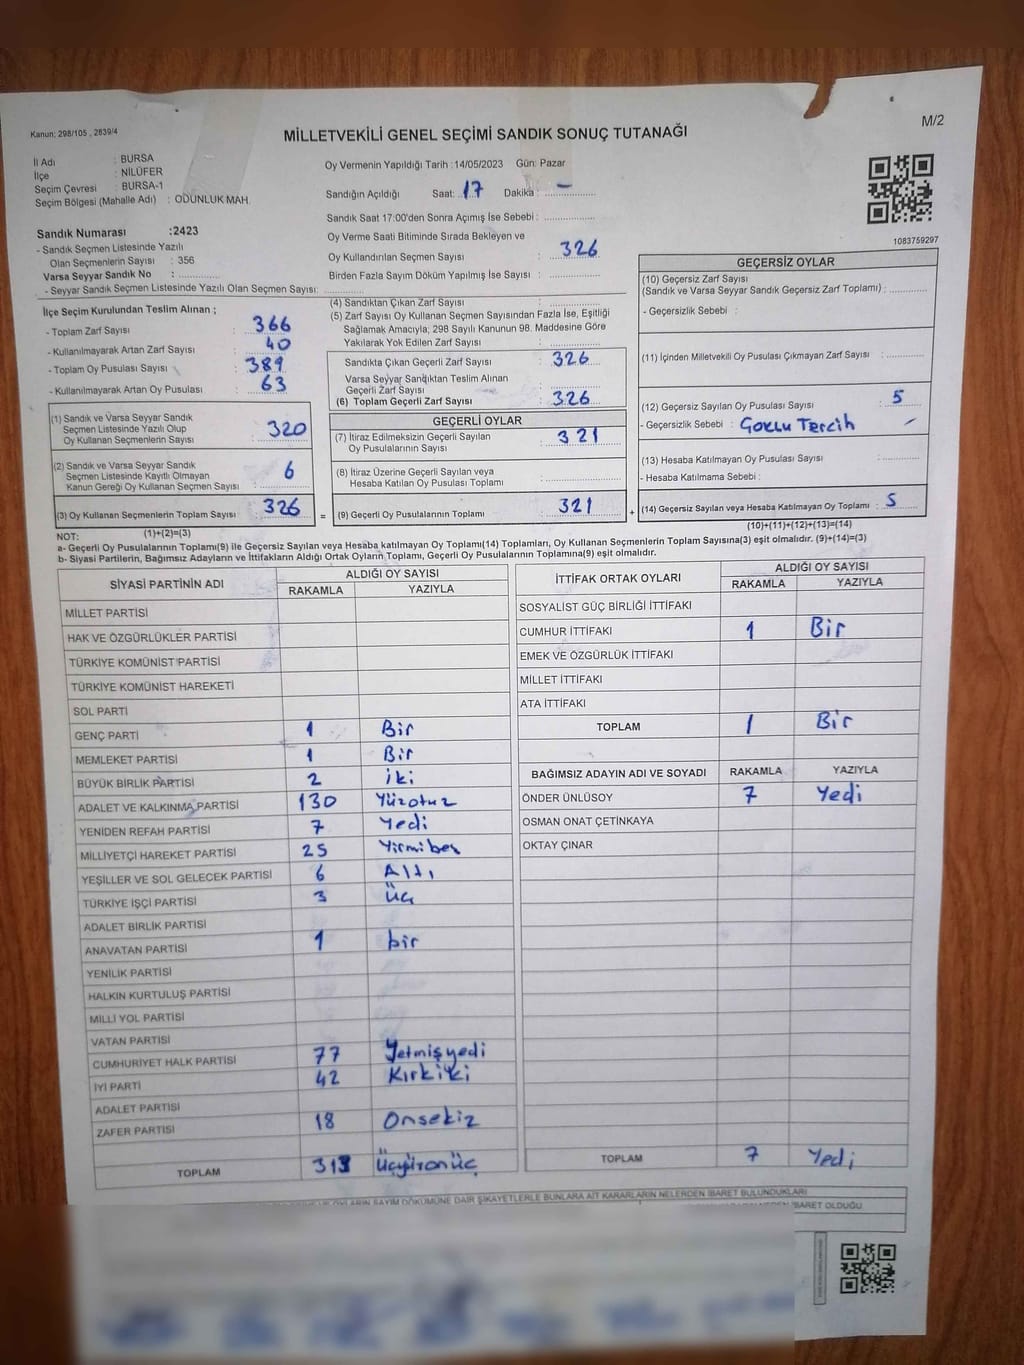 Kanun: 298/105 , 2839/4
MİLLETVEKİLİ GENEL SEÇİMİ SANDIK SONUÇ TUTANAĞI
M/2
İl Adı : BURSA
İlçe : NİLÜFER
Seçim Çevresi : BURSA-1
Seçim Bölgesi (Mahalle Adı) : ODUNLUK MAH.
Sandık Numarası :2423
- Sandık Seçmen Listesinde Yazılı
Olan Seçmenlerin Sayısı : 356
Varsa Seyyar Sandık No :
- Seyyar Sandık Seçmen Listesinde Yazılı Olan Seçmen Sayısı:
Oy Vermenin Yapıldığı Tarih :14/05/2023 Gün: Pazar
Sandığın Açıldığı Saat: 17 Dakika : -
Sandık Saat 17:00'den Sonra Açımış İse Sebebi :
Oy Verme Saati Bitiminde Sırada Bekleyen ve
Oy Kullandırılan Seçmen Sayısı : 326
Birden Fazla Sayım Döküm Yapılmış İse Sayısı :
1083759297
İlçe Seçim Kurulundan Teslim Alınan ;
- Toplam Zarf Sayısı : 366
- Kullanılmayarak Artan Zarf Sayısı : 40
- Toplam Oy Pusulası Sayısı : 389
- Kullanılmayarak Artan Oy Pusulası : 63
(1) Sandık ve Varsa Seyyar Sandık
Seçmen Listesinde Yazılı Olup
Oy Kullanan Seçmenlerin Sayısı : 320
(2) Sandık ve Varsa Seyyar Sandık
Seçmen Listesinde Kayıtlı Olmayan
Kanun Gereği Oy Kullanan Seçmen Sayısı : 6
(3) Oy Kullanan Seçmenlerin Toplam Sayısı : 326
(1)+(2)=(3)
(4) Sandıktan Çıkan Zarf Sayısı :
(5) Zarf Sayısı Oy Kullanan Seçmen Sayısından Fazla İse, Eşitliği
Sağlamak Amacıyla; 298 Sayılı Kanunun 98. Maddesine Göre
Yakılarak Yok Edilen Zarf Sayısı :
Sandıkta Çıkan Geçerli Zarf Sayısı : 326
Varsa Seyyar Sandıktan Teslim Alınan
Geçerli Zarf Sayısı :
(6) Toplam Geçerli Zarf Sayısı : 326
GEÇERLİ OYLAR
(7) İtiraz Edilmeksizin Geçerli Sayılan
Oy Pusulalarının Sayısı : 321
(8) İtiraz Üzerine Geçerli Sayılan veya
Hesaba Katılan Oy Pusulası Toplamı :
= (9) Geçerli Oy Pusulalarının Toplamı : 321 +
GEÇERSİZ OYLAR
(10) Geçersiz Zarf Sayısı
(Sandık ve Varsa Seyyar Sandık Geçersiz Zarf Toplamı) :
- Geçersizlik Sebebi :
(11) İçinden Milletvekili Oy Pusulası Çıkmayan Zarf Sayısı :
(12) Geçersiz Sayılan Oy Pusulası Sayısı : 5
- Geçersizlik Sebebi : Goklu Tercih
(13) Hesaba Katılmayan Oy Pusulası Sayısı :
- Hesaba Katılmama Sebebi :
(14) Geçersiz Sayılan veya Hesaba Katılmayan Oy Toplamı : 5
(10)+(11)+(12)+(13)=(14)
NOT:
a- Geçerli Oy Pusulalarının Toplamı(9) ile Geçersiz Sayılan veya Hesaba katılmayan Oy Toplamı(14) Toplamları, Oy Kullanan Seçmenlerin Toplam Sayısına(3) eşit olmalıdır. (9)+(14)=(3)
b- Siyasi Partilerin, Bağımsız Adayların ve İttifakların Aldığı Ortak Oyların Toplamı, Geçerli Oy Pusulalarının Toplamına(9) eşit olmalıdır.
SİYASİ PARTİNİN ADI ALDIĞI OY SAYISI
RAKAMLA YAZIYLA
MİLLET PARTİSİ
HAK VE ÖZGÜRLÜKLER PARTİSİ
TÜRKİYE KOMÜNİST PARTİSİ
TÜRKİYE KOMÜNİST HAREKETİ
SOL PARTİ
GENÇ PARTİ 1 Bir
MEMLEKET PARTİSİ 1 Bir
BÜYÜK BİRLİK PARTİSİ 2 iki
ADALET VE KALKINMA PARTİSİ 130 Yüzotuz
YENİDEN REFAH PARTİSİ 7 Yedi
MİLLİYETÇİ HAREKET PARTİSİ 25 Yirmibeş
YEŞİLLER VE SOL GELECEK PARTİSİ 6 Altı
TÜRKİYE İŞÇİ PARTİSİ 3 Üç
ADALET BİRLİK PARTİSİ
ANAVATAN PARTİSİ 1 bir
YENİLİK PARTİSİ
HALKIN KURTULUŞ PARTİSİ
MİLLİ YOL PARTİSİ
VATAN PARTİSİ
CUMHURİYET HALK PARTİSİ 77 Yetmişyedi
İYİ PARTİ 42 Kırkiki
ADALET PARTİSİ
ZAFER PARTİSİ 18 Onsekiz
TOPLAM 313 Üçyüzonüç
İTTİFAK ORTAK OYLARI ALDIĞI OY SAYISI
RAKAMLA YAZIYLA
SOSYALİST GÜÇ BİRLİĞİ İTTİFAKI
CUMHUR İTTİFAKI 1 Bir
EMEK VE ÖZGÜRLÜK İTTİFAKI
MİLLET İTTİFAKI
ATA İTTİFAKI
TOPLAM 1 Bir
BAĞIMSIZ ADAYIN ADI VE SOYADI RAKAMLA YAZIYLA
ÖNDER ÜNLÜSOY 7 Yedi
OSMAN ONAT ÇETİNKAYA
OKTAY ÇINAR
TOPLAM 7 Yedi
OYLARIN SAYIM DÖKÜMÜNE DAİR ŞİKAYETLERLE BUNLARA AİT KARARLARIN NELERDEN İBARET BULUNDUKLARI
İBARET OLDUĞU